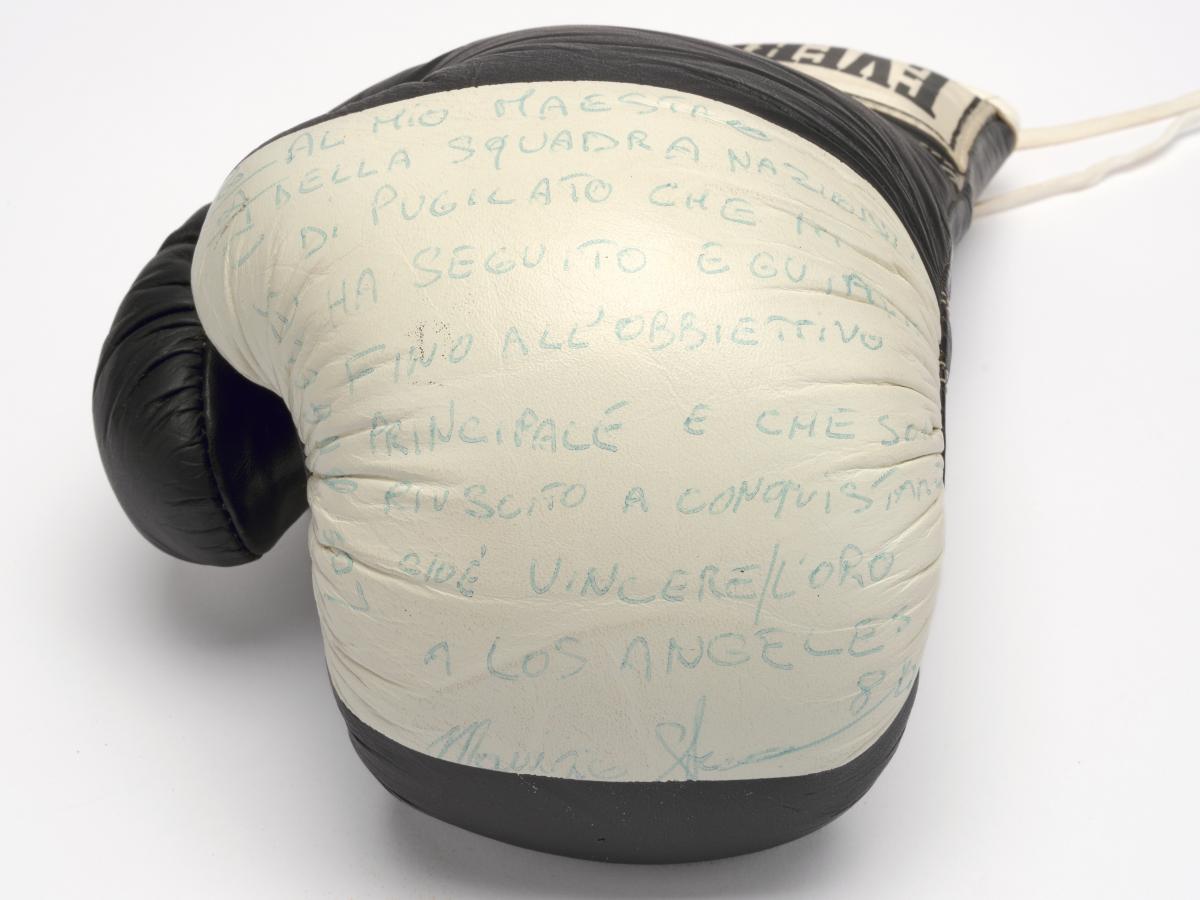 EVER
AL MIO MAESTRO
DELLA SQUADRA NAZIONALE
DI PUGILATO CHE MI
HA SEGUITO E GUIDATO
FINO ALL'OBBIETTIVO
PRINCIPALE E CHE SONO
RIUSCITO A CONQUISTARE
CIOÉ VINCERE/L'ORO
A LOS ANGELES
84
Maurizio Stecca